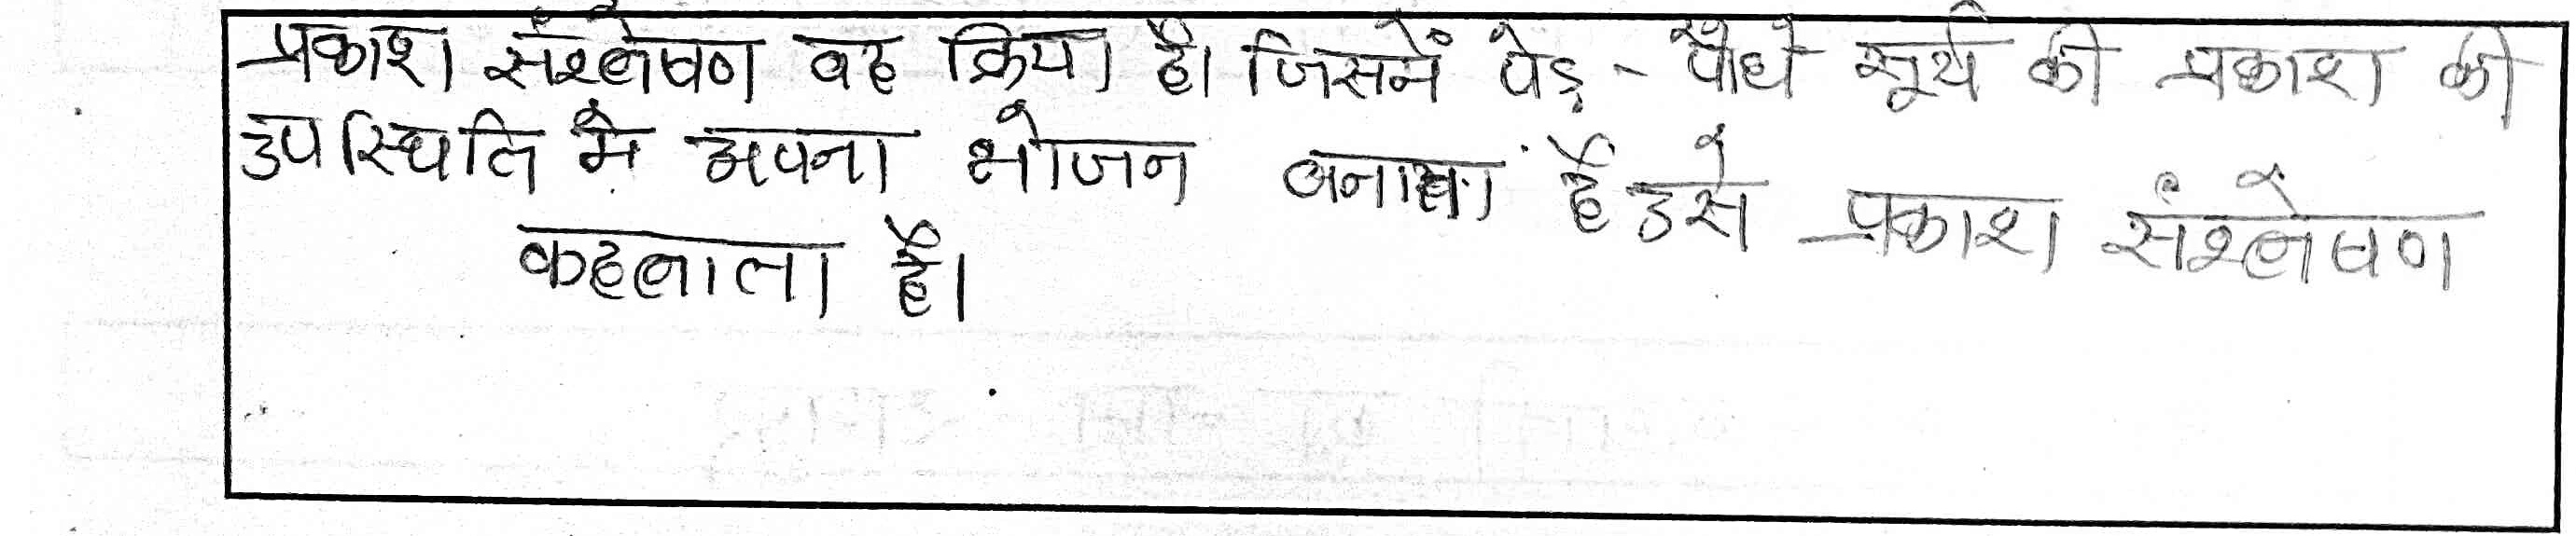 प्रकाश संश्लेषण वह क्रिया है। जिसमें पेड़ - पौधे सूर्य की प्रकाश की
उपस्थिति में अपना भोजन बनाता है उसे प्रकाश संश्लेषण
कहलाता है।